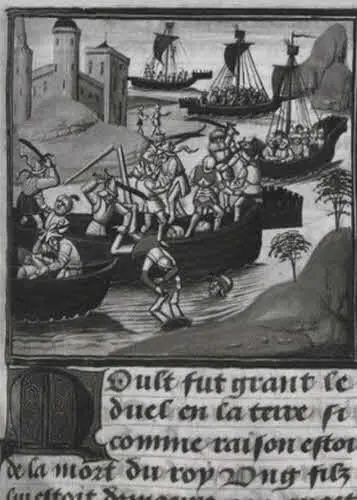 Moult fut grant le
duel en la terre si
comme raison estoi
de la mort du roy Ung filz
lui estoit